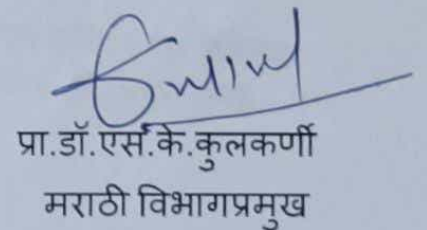 प्रा.डॉ.एस.के.कुलकर्णी
मराठी विभागप्रमुख